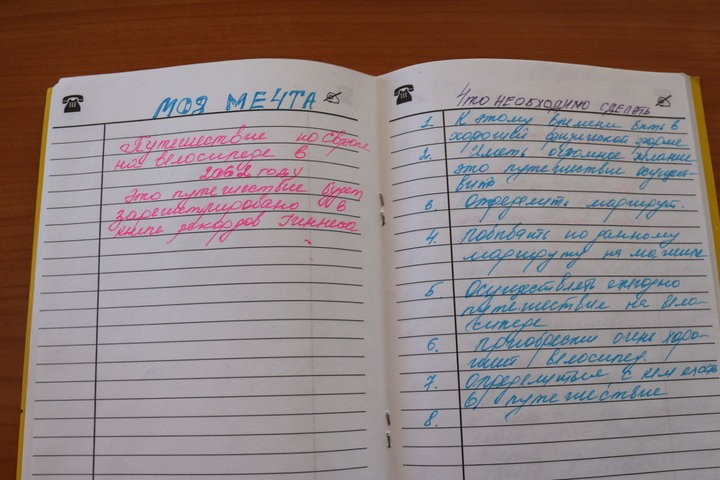 МОЯ МЕЧТА
Путешествие по Европе
на велосипеде в
2062 году
Это путешествие будет
зарегистрировано в
книге рекордов Гиннеса
Что НЕОБХОДИМО СДЕЛАТЬ
1. К этому времени быть в
хорошей физической форме
2. Иметь огромное желание
это путешествие осущест-
вить
3 Определить маршрут.
4. Побывать по данному
маршруту на машине
5. Осуществлять ежегодно
путешествие на вело-
сипеде
6. Приобрести очень хоро-
ший велосипед.
7. Определиться с кем ехать
в путешествие
8.